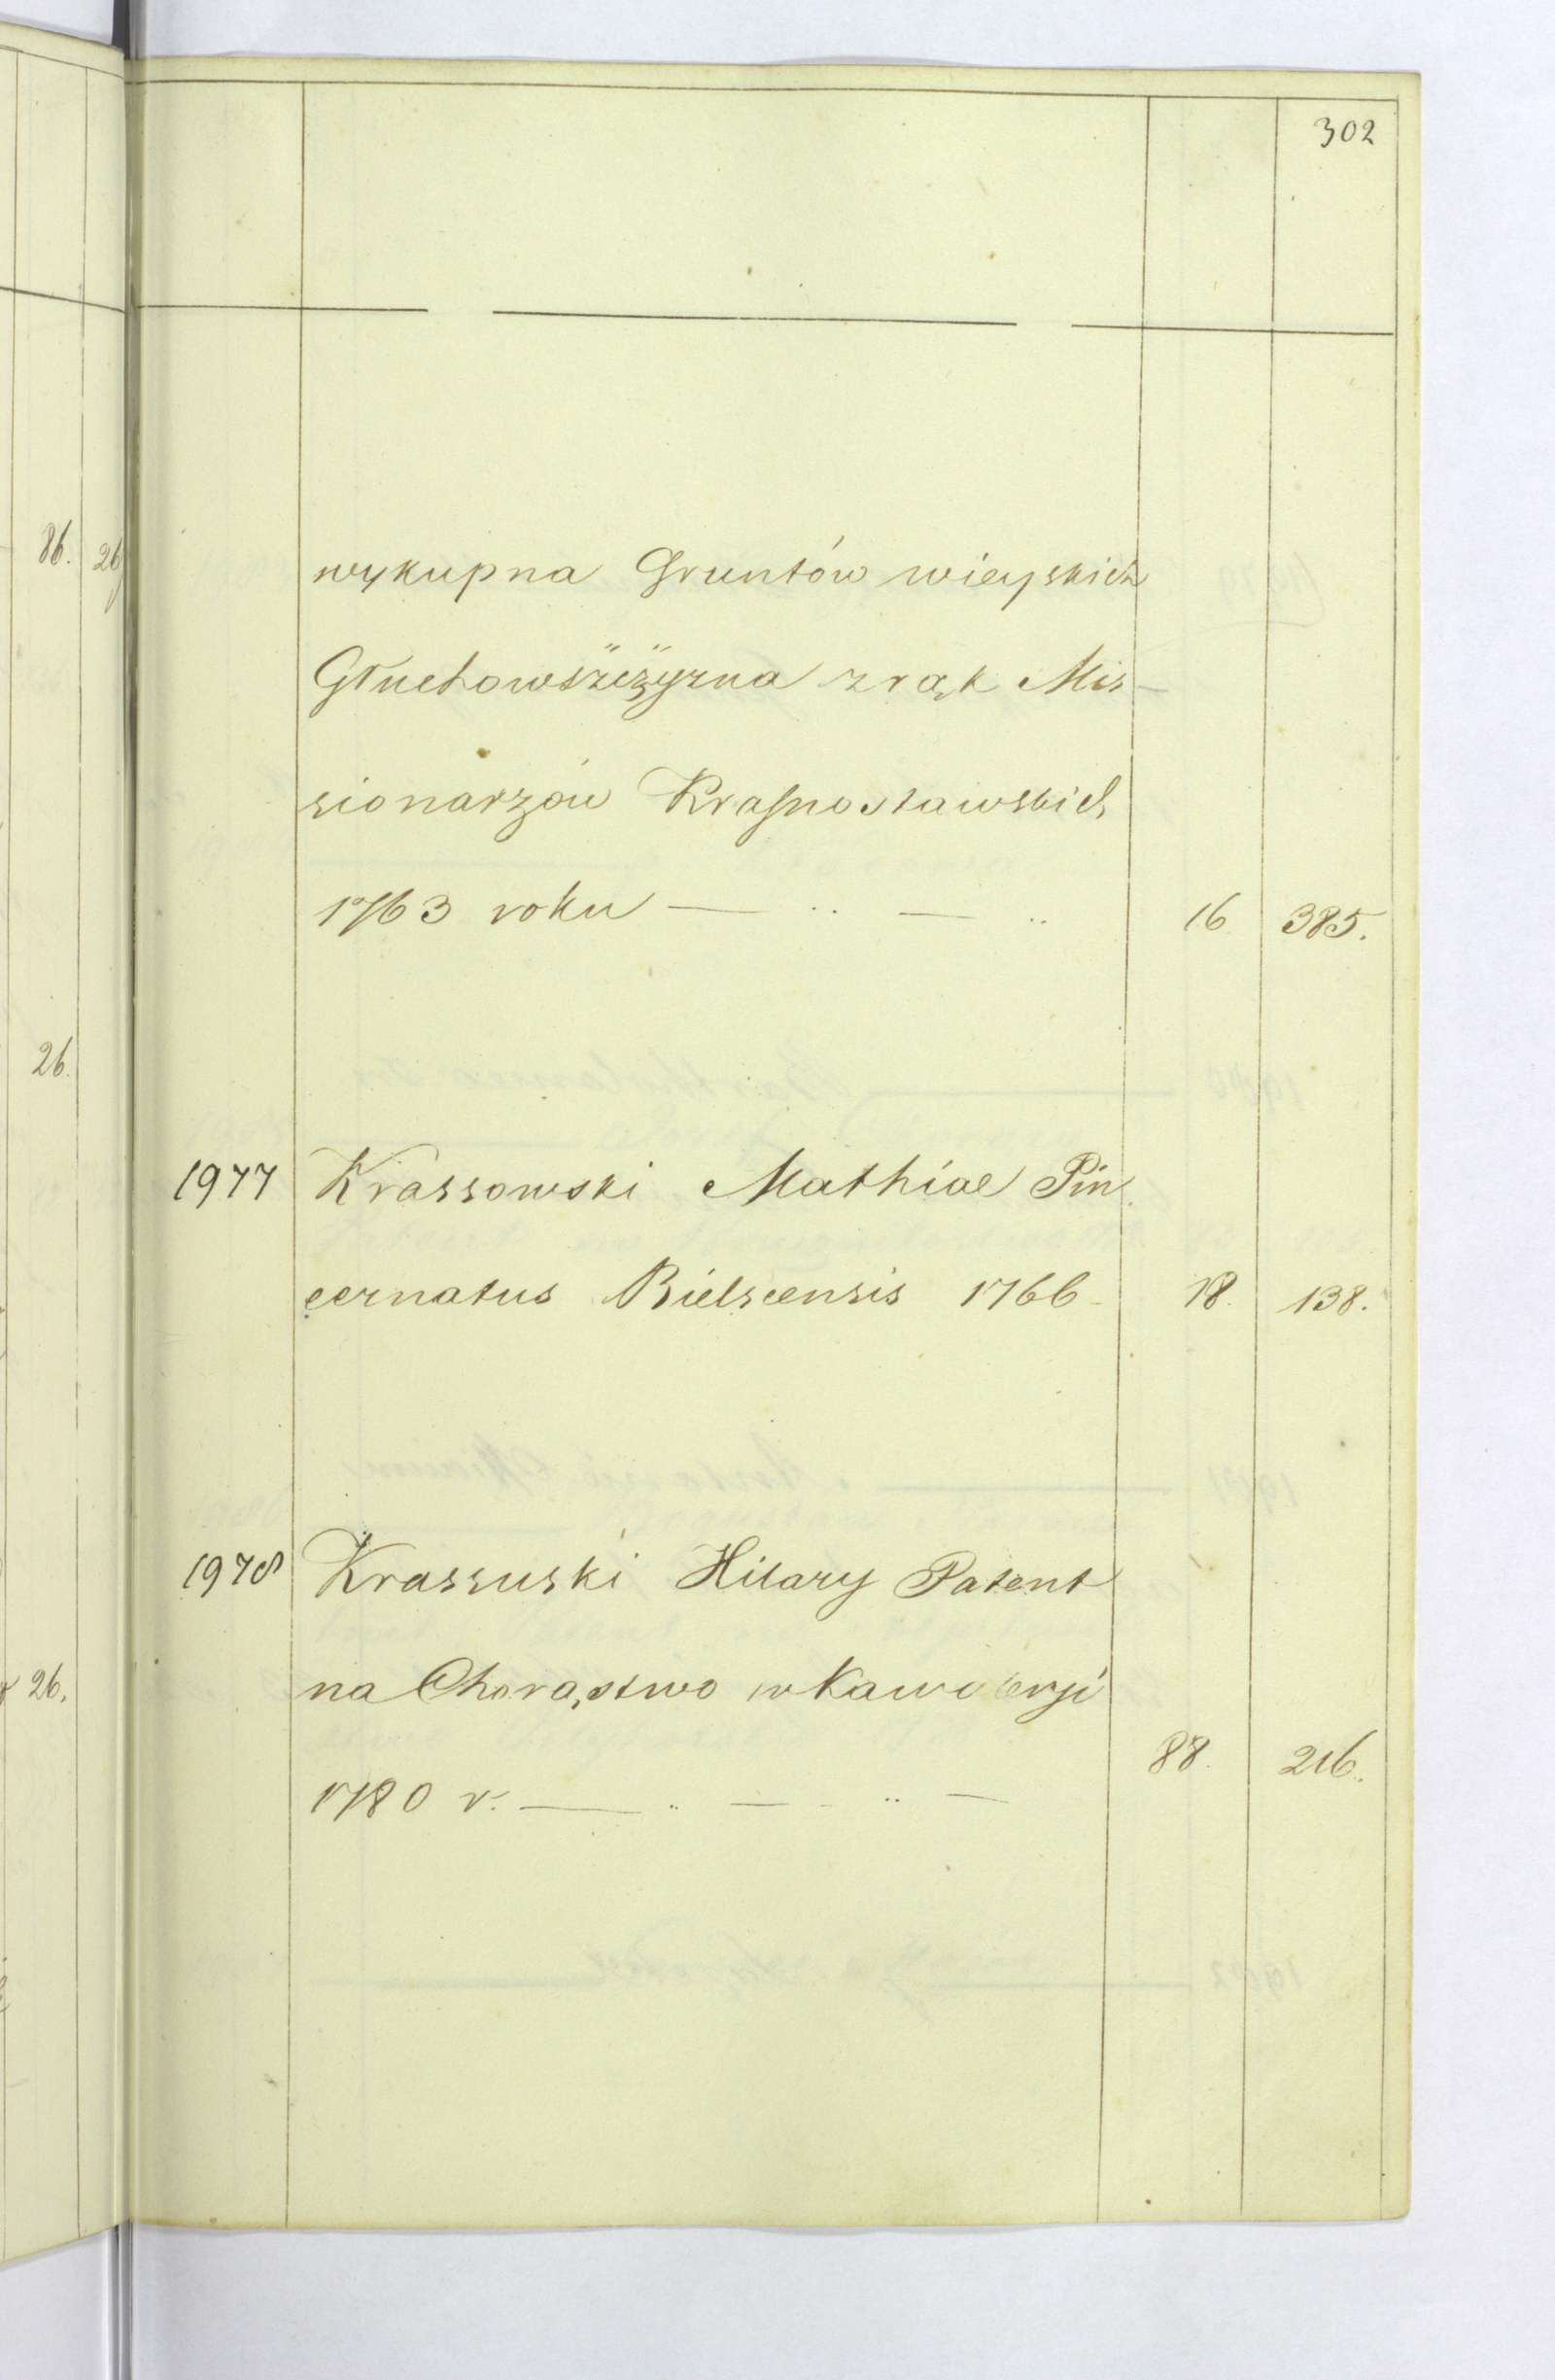 302
86. 26
wykupna Gruntów wieyskich
zrąk Mis-
sionarzów Krasnostawskich
1763 roku — .. — .. 16 385.
26.
1977 Krassowski Mathiae Pin
cernatus Bielscensis 1766 18. 138.
1978 Krassuski Hilary Patent
26.
na Chorąstwo w Kawaleryi
88. 216.
1780 r. — .. — .. —